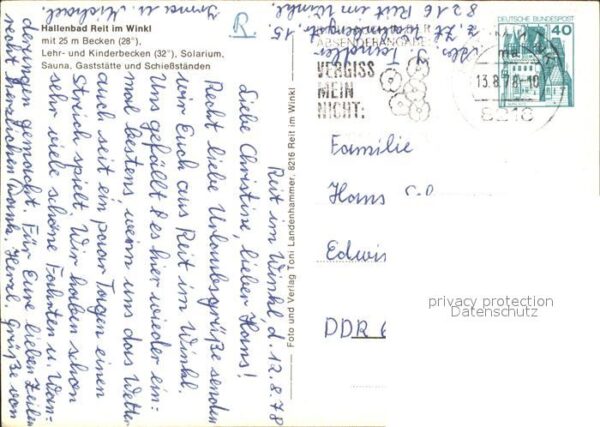 Hallenbad Reit im Winkl
mit 25 m Becken (28°),
Lehr- und Kinderbecken (32°), Solarium,
Sauna, Gaststätte und Schießständen
Reit im Winkl d. 12.8.78
Liebe Christine, lieber Hans!
Recht liebe Urlaubsgrüße senden
wir Euch aus Reit im Winkl.
Uns gefällt es hier wieder ein-
mal bestens, wenn uns das Wetter
auch seit ein paar Tagen einen
Streich spielt. Wir haben schon
sehr viele schöne Fahrten u. Wan-
derungen gemacht. Für Eure lieben Zeilen
recht herzlichen Dank. Herzl. Grüße von
Irma u. Michael.
R.
Foto und Verlag Toni Landenhammer, 8216 Reit im Winkl
8216 Reit im Winkl
ABSENDERANGABE
VERGISS
MEIN
NICHT:
DEUTSCHE BUNDESPOST
40
13.8.78-10
8216
Familie
Hans
Edwin
DDR
privacy protection
Datenschutz